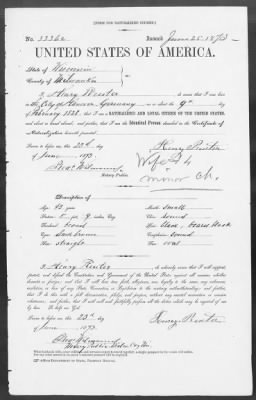 [FORM FOR NATURALIZED CITIZEN.]
No. 33362 Issued June 25, 1873
UNITED STATES OF AMERICA.
State of Wisconsin
County of Milwaukee
I, Henry Reuter do swear that I was born in
the City of Germany on or about the 9th day of
February 1828; that I am a NATURALIZED AND LOYAL CITIZEN OF THE UNITED STATES,
and about to travel abroad; and further, that I am the Identical Person described in the Certificate of
Naturalization herewith presented.
Sworn to before me, this 23d day
of June 1873
Notary Public.
Henry Reuter
Wife & 4
minor ch.
Description of
Age: 45 years Mouth: small
Stature: 5 ft. 9 inches, Eng. Chin: round
Forehead: broad Hair: black, beard black
Eyes: dark brown Complexion: sound
Nose: straight Face: oval
I, Henry Reuter do solemnly swear that I will support, protect,
and defend the Constitution and Government of the United States against all enemies, whether
domestic or foreign; and that I will bear true faith, allegiance, and loyalty to the same, any ordinance,
resolution, or law of any State, Convention, or Legislature to the contrary notwithstanding; and further,
that I do this with a full determination, pledge, and purpose, without any mental reservation or evasion
whatsoever; and further, that I will well and faithfully perform all the duties which may be required of me
by law. So help me God.
Sworn to before me, this 23d day
of June 1873
Henry Reuter
Notary Public